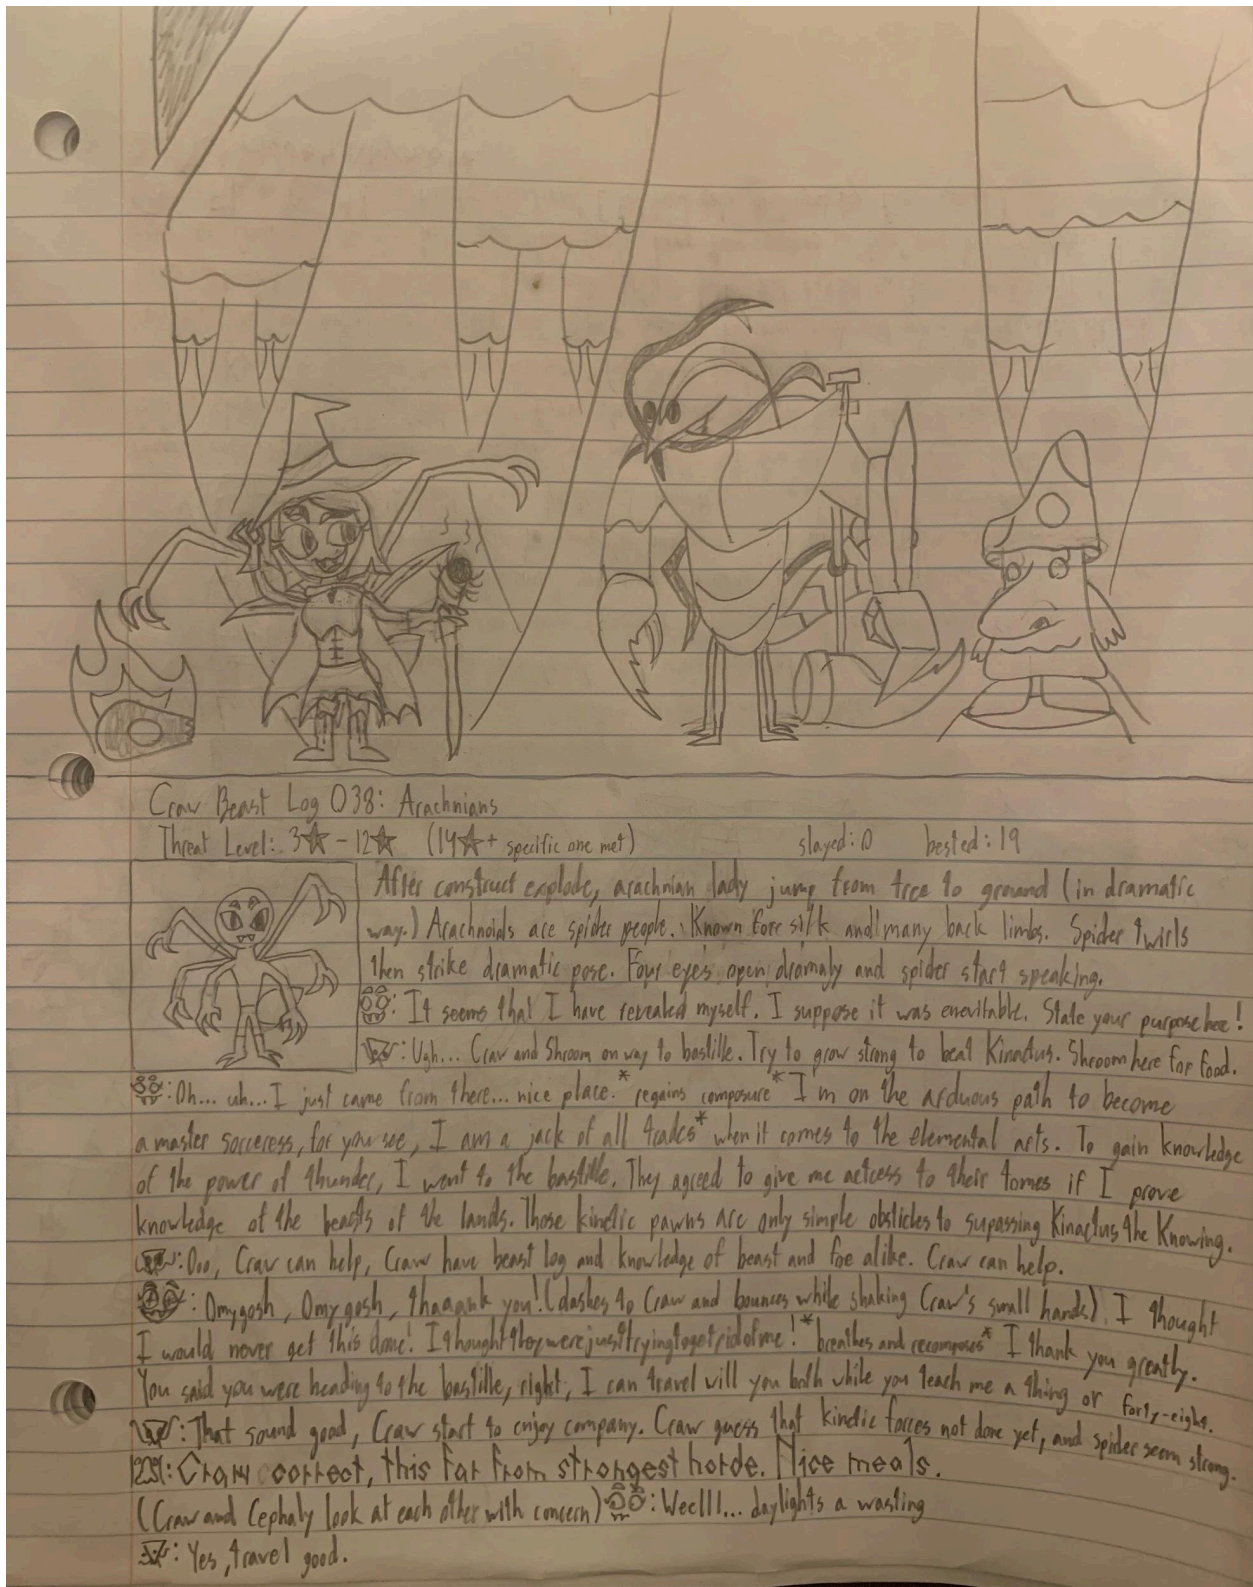 Craw Beast Log 038: Arachnians
Threat Level: 3★ - 12★ (14★+ specific one met) slayed: 0 bested: 19
After construct explode, arachnian lady jump from tree to ground (in dramatic
way.) Arachnoids are spider people. Known fore silk and many back limbs. Spider twirls
then strike dramatic pose. Four eyes open dramaly and spider start speaking.
: It seems that I have revealed myself. I suppose it was enevitable. State your purpose here!
: Ugh... Craw and Shroom on way to bastille. Try to grow strong to beat Kinactus. Shroom here for food.
: Oh... uh... I just came from there... nice place. *regains composure* I'm on the arduous path to become
a master sorceress, for you see, I am a jack of all trades* when it comes to the elemental arts. To gain knowledge
of the power of thunder, I went to the bastille. They agreed to give me actcess to their tomes if I prove
knowledge of the beasts of the lands. Those kinetic pawns are only simple obsticles to supassing Kinactus the Knowing.
: Ooo, Craw can help, Craw have beast log and knowledge of beast and foe alike. Craw can help.
: Omygosh, Omygosh, thaaank you! (dashes to Craw and bounces while shaking Craw's small hands) I thought
I would never get this done! Ithoughttheywerejusttryingtogetridofme! *breathes and recomposes* I thank you greatly.
You said you were heading to the bastille, right, I can travel will you both while you teach me a thing or forty-eight.
: That sound good, Craw start to enjoy company. Craw guess that kinetic forces not done yet, and spider seem strong.
: Craw correct, this far from strongest horde. Nice meals.
(Craw and Cephaly look at each other with concern) : Weelll... daylights a wasting
: Yes, travel good.